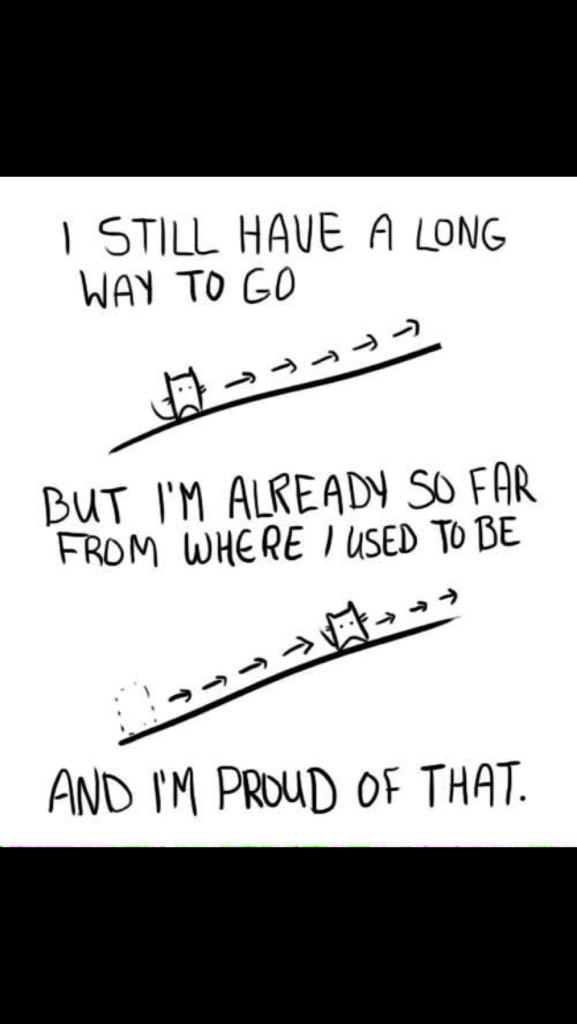 I STILL HAVE A LONG
WAY TO GO
BUT I'M ALREADY SO FAR
FROM WHERE I USED TO BE
AND I'M PROUD OF THAT.